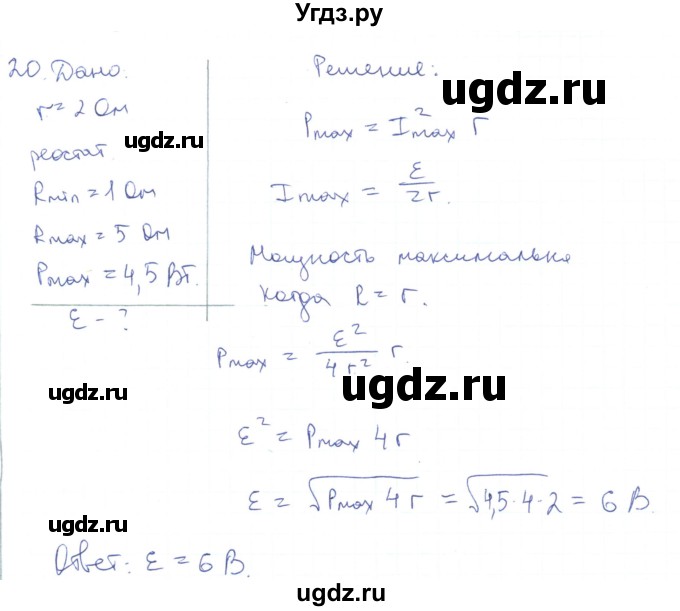 Угдз.ру
20. Дано.
r = 2 Ом
ugdz.ru
реостат.
Rmin = 1 Ом
Rmax = 5 Ом
Pmax = 4,5 Вт.
ε - ?
ugdz.ru
Решение:
ugdz.ru
Pmax = I²max r
Imax = ε/2r.
Мощность максимальна
когда R = r.
Pmax = ε²/4r² r.
ugdz.ru
ε² = Pmax 4r
ε = √Pmax 4r = √4,5·4·2 = 6 В.
ugdz.ru
Ответ: ε = 6 В.
ugdz.ru